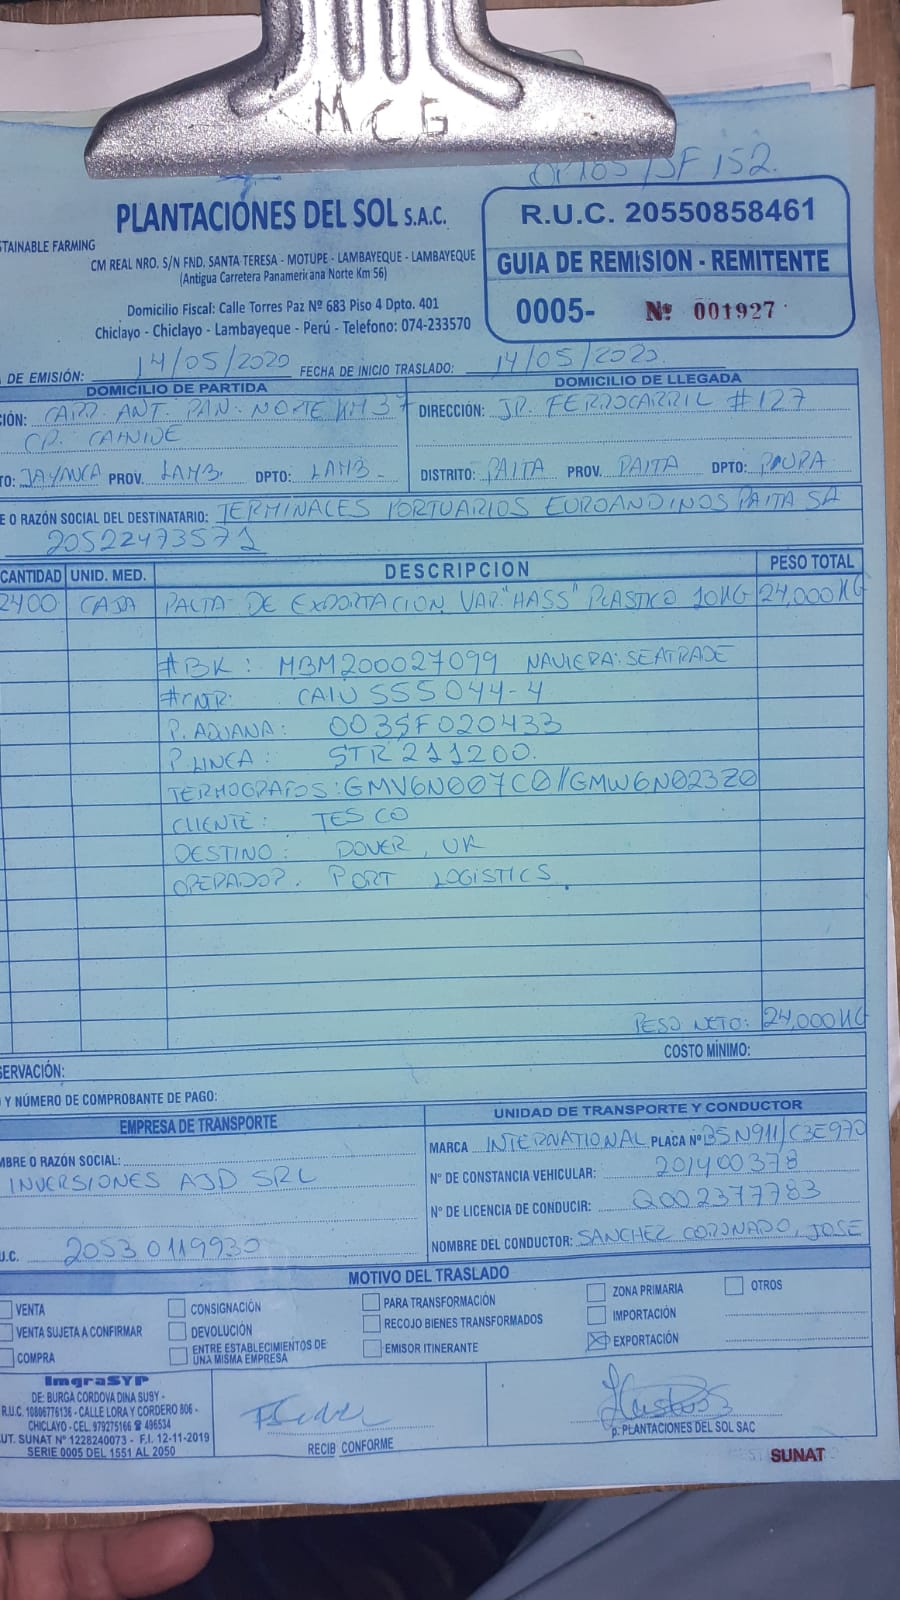 MCG
SF 152.
PLANTACIONES DEL SOL S.A.C.
STAINABLE FARMING
CM REAL NRO. S/N FND. SANTA TERESA - MOTUPE - LAMBAYEQUE - LAMBAYEQUE
(Antigua Carretera Panamericana Norte Km 56)
Domicilio Fiscal: Calle Torres Paz Nº 683 Piso 4 Dpto. 401
Chiclayo - Chiclayo - Lambayeque - Perú - Telefono: 074-233570
R.U.C. 20550858461
GUIA DE REMISION - REMITENTE
0005- Nº 001927
DE EMISIÓN: 14/05/2020 FECHA DE INICIO TRASLADO: 14/05/2020.
DOMICILIO DE PARTIDA
CIÓN: CARR. ANT. PAN. NORTE KM 37
CP.
TO: JAYANCA PROV. LAMB. DPTO: LAMB.
DOMICILIO DE LLEGADA
DIRECCIÓN: JR. FERROCARRIL #127
DISTRITO: PAITA PROV. PAITA DPTO: PIURA
E O RAZÓN SOCIAL DEL DESTINATARIO: TERMINALES PORTUARIOS EUROANDINOS PAITA SA
20522473571
CANTIDAD UNID. MED. DESCRIPCION PESO TOTAL
2400 CAJA PALTA DE EXPORTACION VAR. "HASS" PLASTICO 10KG 24,000KG
#BK: MBM200027099 NAVIERA: SEATRADE
#CNTR: CAIU 555044-4
P. ADUANA: 003SF020433
P. LINEA: STR211200.
TERMOGRAFOS: GMV6N007C0//GMW6N023Z0
CLIENTE: TESCO
DESTINO: DOVER, UK
OPERADOR: PORT LOGISTICS.
PESO NETO: 24,000KG
SERVACIÓN:
COSTO MÍNIMO:
Y NÚMERO DE COMPROBANTE DE PAGO:
EMPRESA DE TRANSPORTE
MBRE O RAZÓN SOCIAL:
INVERSIONES AJD SRL
U.C. 20530119930
UNIDAD DE TRANSPORTE Y CONDUCTOR
MARCA INTERNATIONAL PLACA Nº B5N911/C3E970
N° DE CONSTANCIA VEHICULAR: 201400378
N° DE LICENCIA DE CONDUCIR: Q002377783
NOMBRE DEL CONDUCTOR: SANCHEZ CORONADO, JOSE
MOTIVO DEL TRASLADO
VENTA
VENTA SUJETA A CONFIRMAR
COMPRA
CONSIGNACIÓN
DEVOLUCIÓN
ENTRE ESTABLECIMIENTOS DE
UNA MISMA EMPRESA
PARA TRANSFORMACIÓN
RECOJO BIENES TRANSFORMADOS
EMISOR ITINERANTE
ZONA PRIMARIA
IMPORTACIÓN
EXPORTACIÓN
OTROS
ImgraSYP
DE: BURGA CORDOVA DINA SUSY -
R.U.C. 10806776136 - CALLE LORA Y CORDERO 806 -
CHICLAYO - CEL. 979275166 ☎ 496534
UT. SUNAT Nº 1228240073 - F.I. 12-11-2019
SERIE 0005 DEL 1551 AL 2050
RECIB CONFORME
p. PLANTACIONES DEL SOL SAC
SUNAT